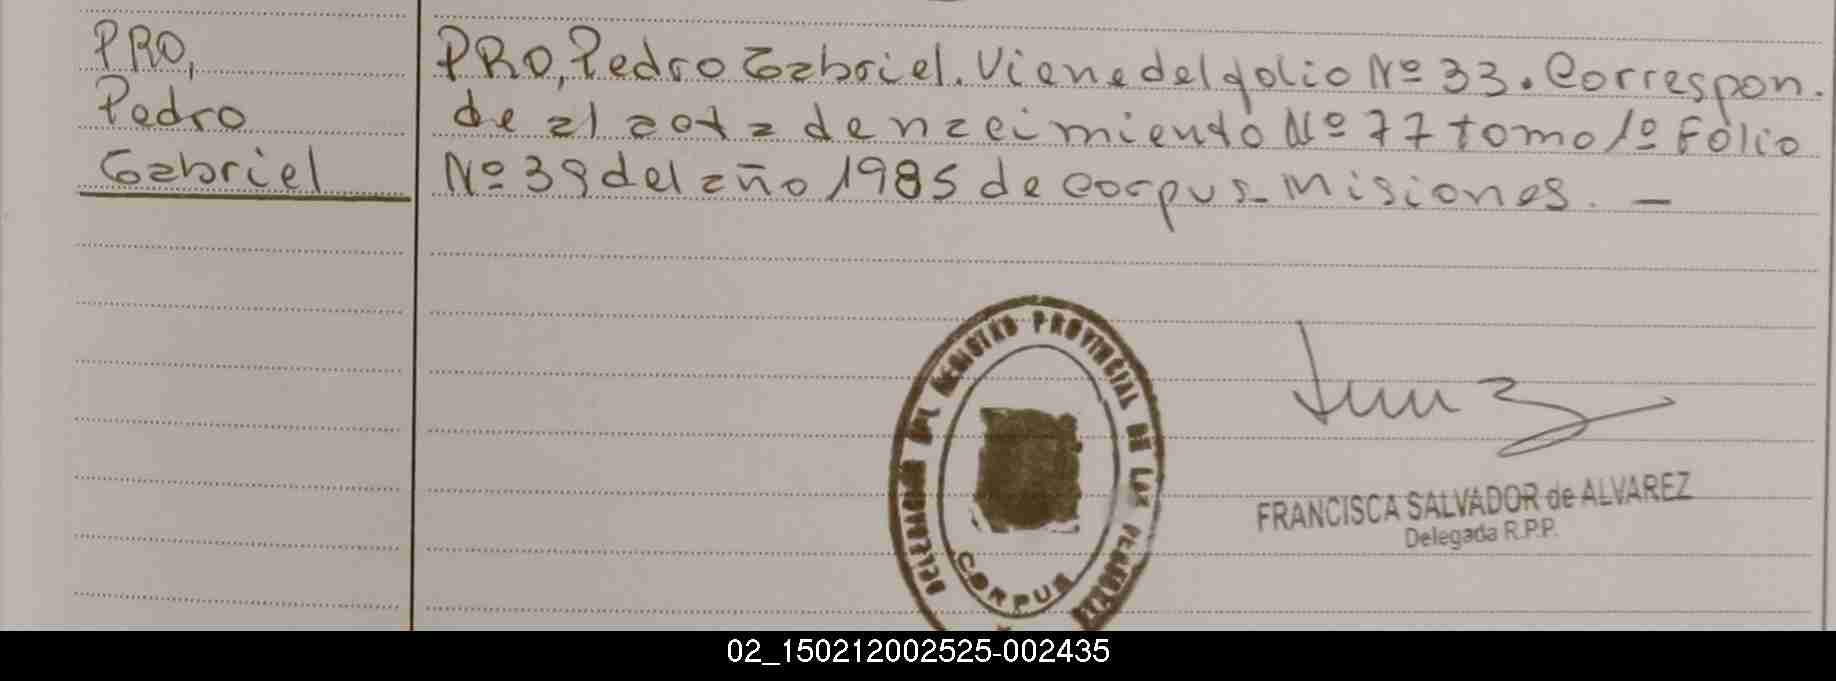 PRO,
Pedro
Gabriel
PRO, Pedro Gabriel. Viene del folio Nº 33. Correspon.
de al acta de nacimiento Nº 77 tomo 1º Folio
Nº 39 del año 1985 de Corpus - Misiones. —
DELEGACION DEL REGISTRO PROVINCIAL DE LAS PERSONAS
CORPUS
FRANCISCA SALVADOR de ALVAREZ
Delegada R.P.P.
02_150212002525-002435